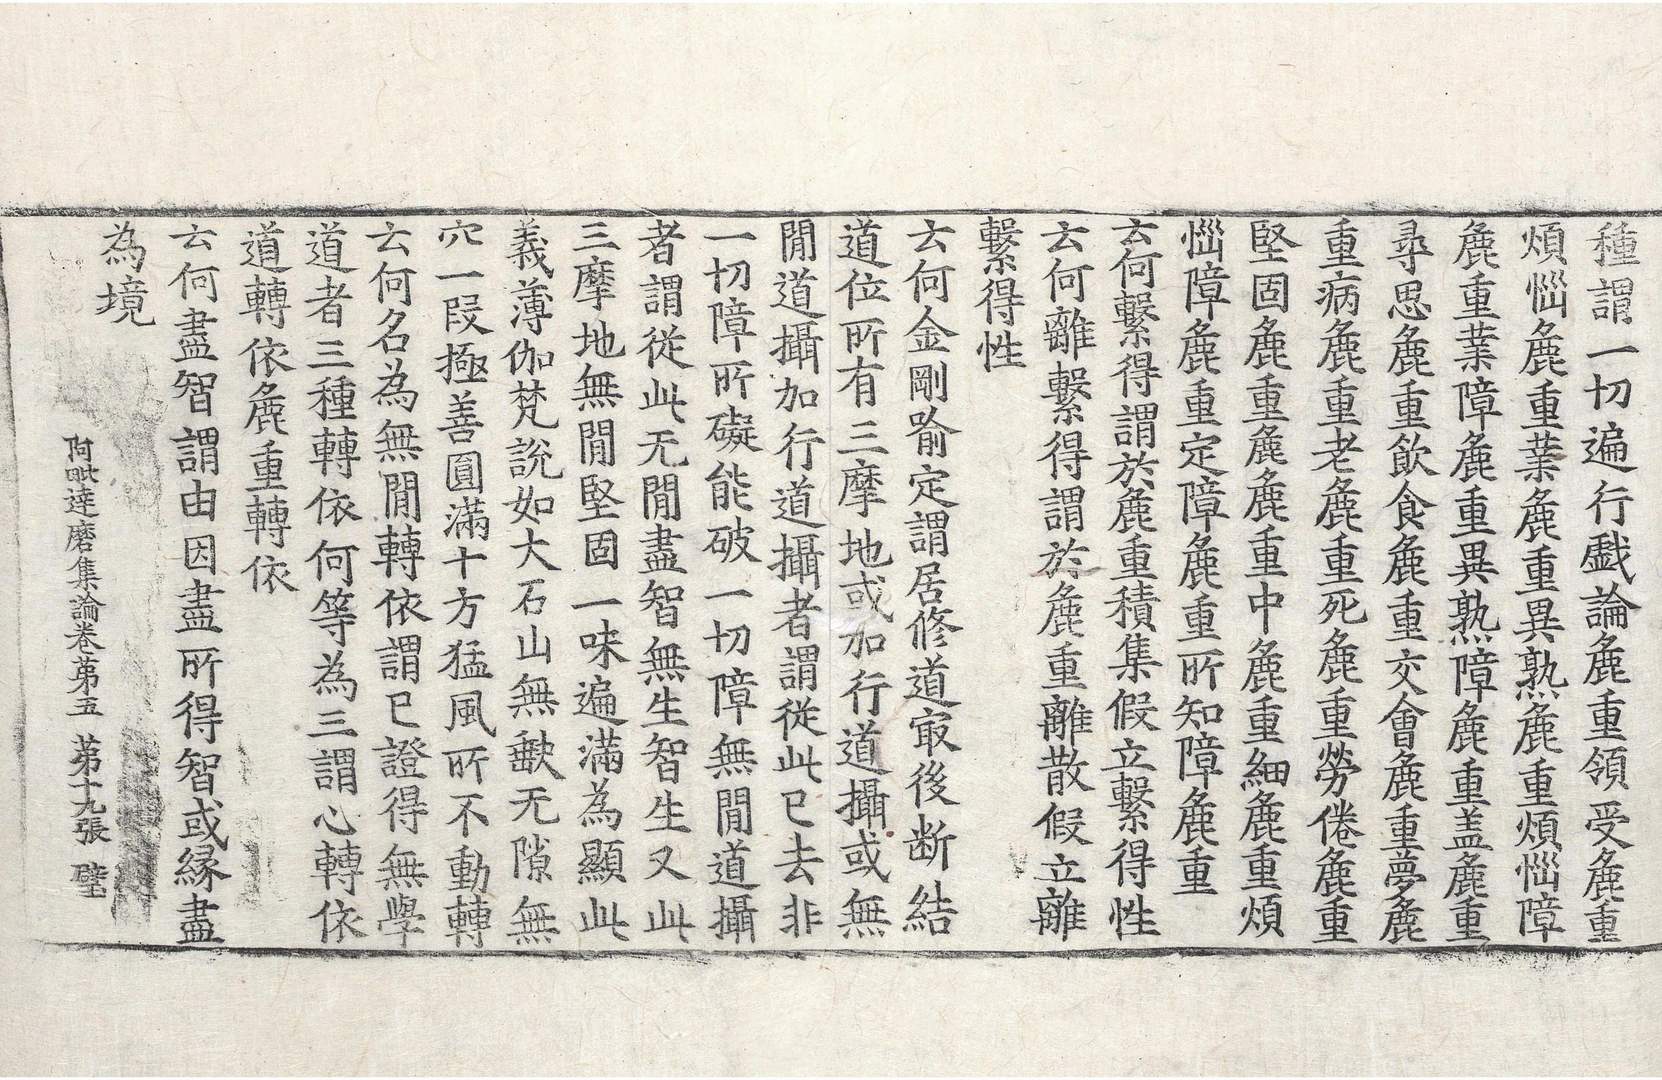 種謂一切遍行戱論麁重領受麁重
煩惱麁重業麁重異熟麁重煩惱障
麁重業障麁重異熟障麁重盖麁重
尋思麁重飲食麁重交會麁重夢麁
重病麁重老麁重死麁重勞倦麁重
堅固麁重麁麁重中麁重細麁重煩
惱障麁重定障麁重所知障麁重
云何繫得謂於麁重積集假立繫得性
云何離繫得謂於麁重離散假立離
繫得性
云何金剛喻定謂居修道㝡後断結
道位所有三摩地或加行道攝或無
閒道攝加行道攝者謂從此已去非
一切障所礙能破一切障無閒道攝
者謂從此无閒盡智無生智生又此
三摩地無閒堅固一味遍滿為顯此
義薄伽梵說如大石山無缺无隙無
穴一段極善圓滿十方猛風所不動轉
云何名為無閒轉依謂已證得無學
道者三種轉依何等為三謂心轉依
道轉依麁重轉依
云何盡智謂由因盡所得智或緣盡
為境
阿毗達磨集論卷苐五 苐十九張 璧